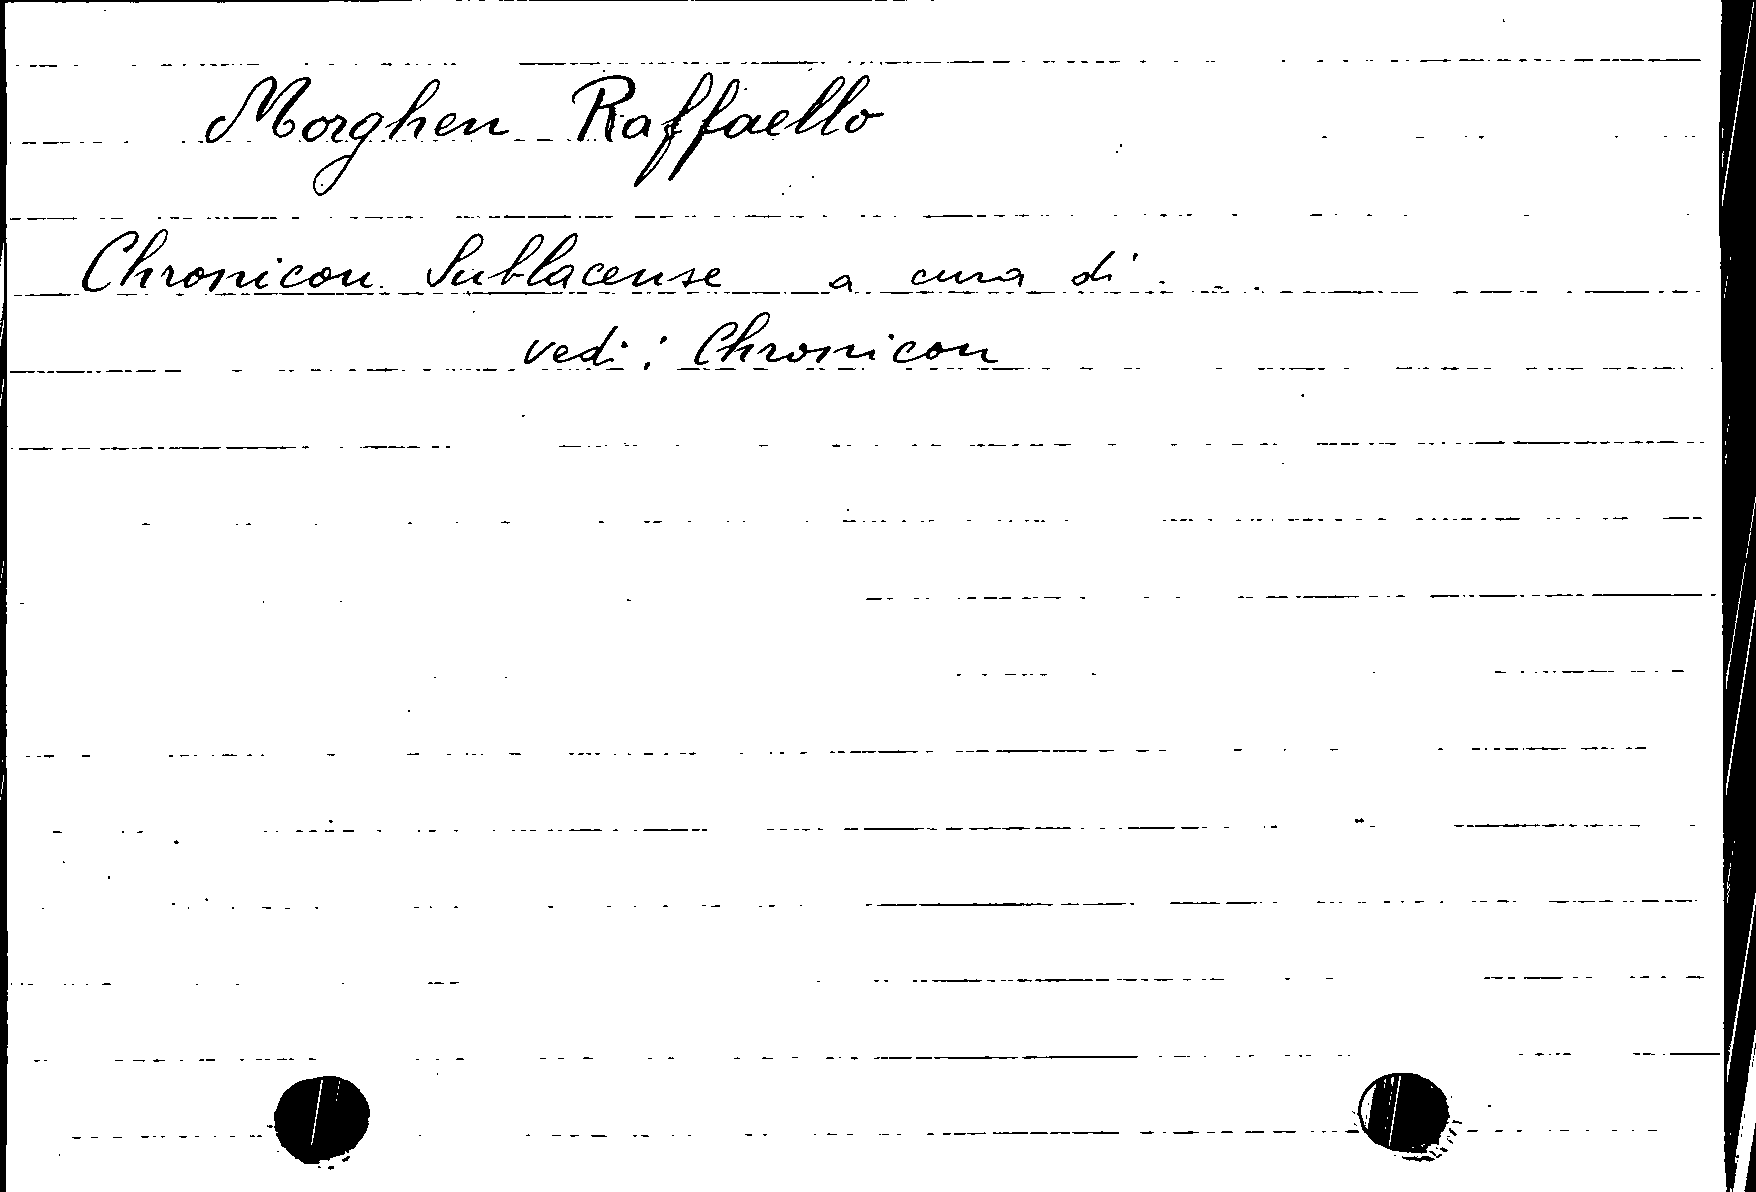 Morghen Raffaello
Chronicon Sublacense a cura di . . .
vedi: Chronicon